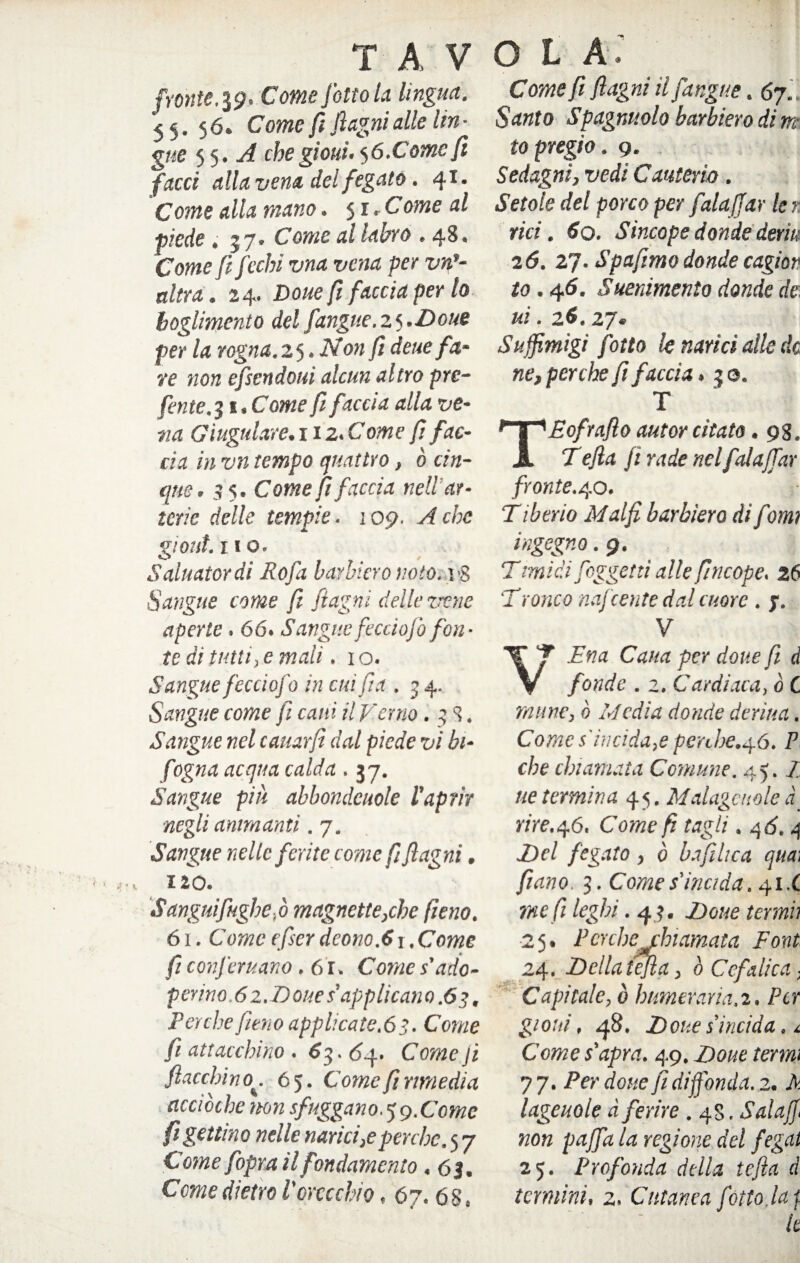 TAVOLA.
fronte.39. Come sotto la lingua.
55. 56. Come si stagni alle lin-
gue 55. A che gioui. 56. Come si
facci alla vena del fegato. 41.
Come alla mano. 51. Come al
piede. 37. Come al labro. 48.
Come si sechi vna vena per vn'-
altra. 24. Doue si faccia per lo
boglimento del sangue. 25. Doue
per la rogna. 25. Non si deue fa-
re non essendoui alcun altro pre-
sente. 31. Come si faccia alla ve-
na Giugulare. 112. Come si fac-
cia in vn tempo quattro, ò cin-
que. 35. Come si faccia nell'ar-
terie delle tempie. 109. A che
gioui. 110.
Saluator di Rosa barbiero noto. 18
Sangue come si stagni delle vene
aperte. 66. Sangue feccioso fon-
te di tutti, e mali. 10.
Sangue feccioso in cui sia. 34.
Sangue come si caui il Verno. 38.
Sangue nel cauarsi dal piede vi bi-
sogna acqua calda. 37.
Sangue più abbondeuole l'aprir
negli animanti. 7.
Sangue nelle ferite come si stagni.
120.
Sanguisughe, ò magnette, che sieno.
61. Come esser deono. 61. Come
si conseruano. 61. Come s'ado-
perino. 62. Doue s'applicano. 63.
Perche sieno applicate. 63. Come
si attacchino. 63. 64. Come si
stacchino. 65. Come si rimedia
acciòche non sfuggano. 59. Come
si gettino nelle narici, e perche. 57
Come sopra il fondamento. 63.
Come dietro l'orecchio. 67. 68.
Come si stagni il sangue. 67.
Santo Spagnuolo barbiero di m
to pregio. 9.
Sedagni, vedi Cauterio.
Setole del porco per salassar le n
rici. 60. Sincope donde deriu
26. 27. Spasimo donde cagion
to. 46. Suenimento donde de
ui. 26. 27.
Suffimigi sotto le narici alle do
ne, perche si faccia. 30.
T
TEofrasto autor citato. 98.
Testa si rade nel salassar
fronte. 40.
Tiberio Malfi barbiero di somm
ingegno. 9.
Timidi soggetti alle sincope. 26
Tronco nascente dal cuore. 5.
V
VEna Caua per doue si d
fonde. 2. Cardiaca, ò C
mune, ò Media donde deriua.
Come s'incida, e perche. 46. P
che chiamata Comune. 45.
ue termina 45. Malageuole à
rire. 46. Come si tagli. 46. 4
Del fegato, ò basilica quai
siano. 3. Come s'incida. 41. C
me si leghi. 43. Doue termin
25. Perche chiamata Font
24. Della testa, ò Cefalica,
Capitale, ò humeraria. 2. Per
gioui. 48. Doue s'incida.
Come s'apra. 49. Doue termi
77. Per doue si diffonda. 2. M
lageuole à ferire. 48. Salass
non passa la regione del fegat
25. Profonda della testa d
termini. 2. Cutanea sotto la
le